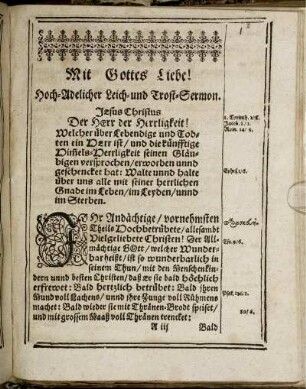 Mit Gottes Liebe!
Hoch-Adelicher Leich-und Trost-Sermon.
Jesus Christus
Der HErr der Herrligkeit!
Welcher über Lebendige und Tod-
ten ein HErr ist/ und die künfftige
Himels-Herrligkeit seinen Gläu-
bigen versprochen/ erworben unnd
geschencket hat: Walte unnd halte
über uns alle mit seiner herrlichen
Gnade im Leben/ im Leyden/ unnd
im Sterben.
IHr Andächtige/ vornehmsten
Theils Hochbetrübete/ allesambt
Vielgeliebete Christen! Der All-
mächtige GOtt/ welcher Wunder-
bar heißt/ ist so wunderbarlich in
seinem Thun/ mit den Menschenkin-
dern unnd besten Christen/ daß er sie bald höchlich
erfrewet: Bald hertzlich betrübet: Bald ihren
Mund voll Lachens/ unnd ihre Zunge voll Rühmens
machet: Bald wieder sie mit Thränen-Brodt speiset/
und mit grossem Maaß voll Thränen trencket:
A iij Bald
Jacob. 2/1.
Rom. 14/9.